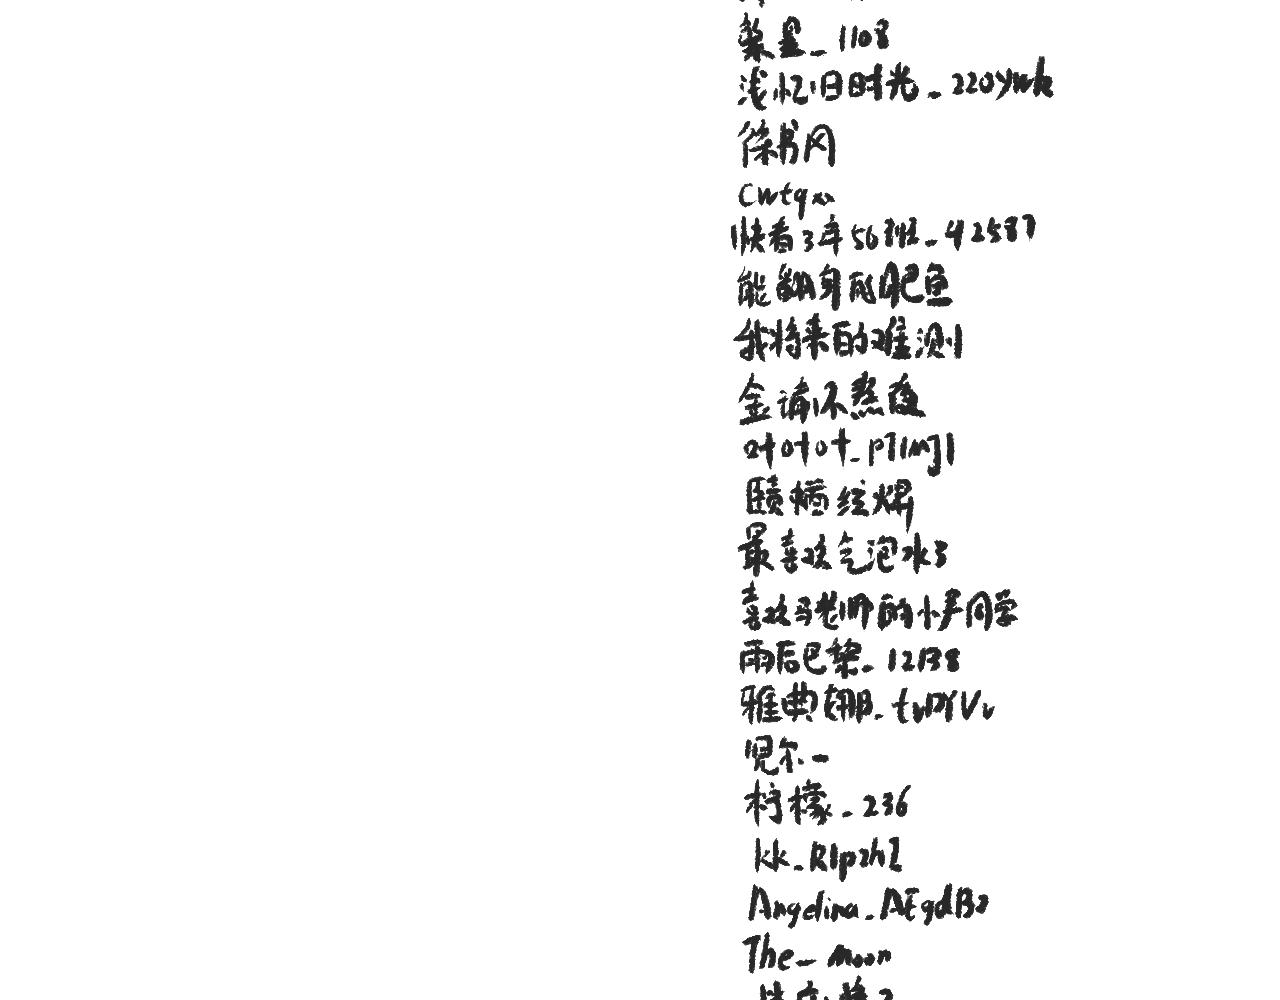 黎星_1108
浅忆旧时光_220ywk
徐书冈
cwtqxx
快看3年56班_42587
能翻身的肥鱼
我将来的难测
金诵不熬夜
叶叶叶_P71mJ1
颐栖绘
最喜欢气泡水3
喜欢马老师的小尹同学
雨后巴黎_12138
雅典娜_tvDYVv
兕尔_
柠檬_236
kk_R1pzhZ
Angelina_AEgdB2
The_moon